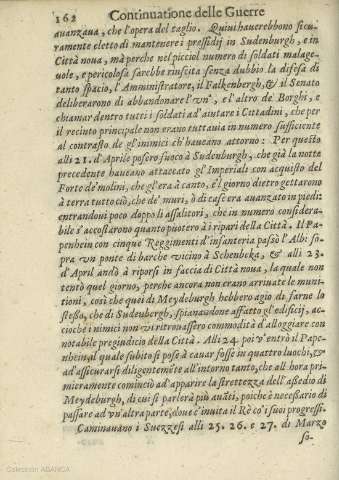 162 Continuatione delle Guerre
auanzaua, che l'opera del taglio. Quiui hauerebbono sicu-
ramente eletto di mantenere i presidij in Sudenburgh, e in
Città noua, mà perche nel picciol numero di soldati malage-
uole, e pericolosa sarebbe riuscita senza dubbio la difesa di
tanto spacio, l'Amministratore, il Falkenbergh, & il Senato
deliberarono di abbandonare l'vn', e l'altro de' Borghi, e
chiamar dentro tutti i soldati ad'aiutare i Cittadini, che per
il recinto principale non erano tuttauia in numero sufficiente
al contrasto de gl'inimici ch'haueano attorno: Per questo
alli 21. d'Aprile posero fuoco à Sudenburgh, che già la notte
precedente haueano attaccato gl'Imperiali con acquisto del
Forte de'molini, che gl'era à canto, e'l giorno dietro gettarono
à terra tutto ciò, che de' muri, ò di case era auanzato in piedi:
entrandoui poco doppo li assalitori, che in numero considera-
bile s'accostarono quanto puotero à i ripari della Città. Il Pa-
penhein con cinque Reggimenti d'infanteria passò l'Albi so-
pra vn ponte di barche vicino à Schenbecka, & alli 23.
d'April andò à riporsi in faccia di Città noua, la quale non
tentò quel giorno, perche ancora non erano arriuate le muni-
tioni, così che quei di Meydeburgh hebbero agio di farne lo
stesso, che di Sudenburgh, spianandone affatto gl'edificij, ac-
cioche i nimici non vi ritrouassero commodità d'alloggiare con
notabile pregiudicio della Città. Alli 24. poi v'entrò il Pape-
nheim, al quale subito si pose à cauar fosse in quattro luochi, &
ad'assicurarsi diligentemẽte all'intorno tanto, che all'hora pri-
mieramente cominciò ad'apparire la strettezza dell'assedio di
Meydeburgh, di cui si parlerà più auãti, poiche è necessario di
passare ad vn'altra parte, doue c'inuita il Rè co'i suoi progressi.
Caminauano i Suezzesi alli 25. 26. e 27. di Marzo
so-
Colección ABANCA